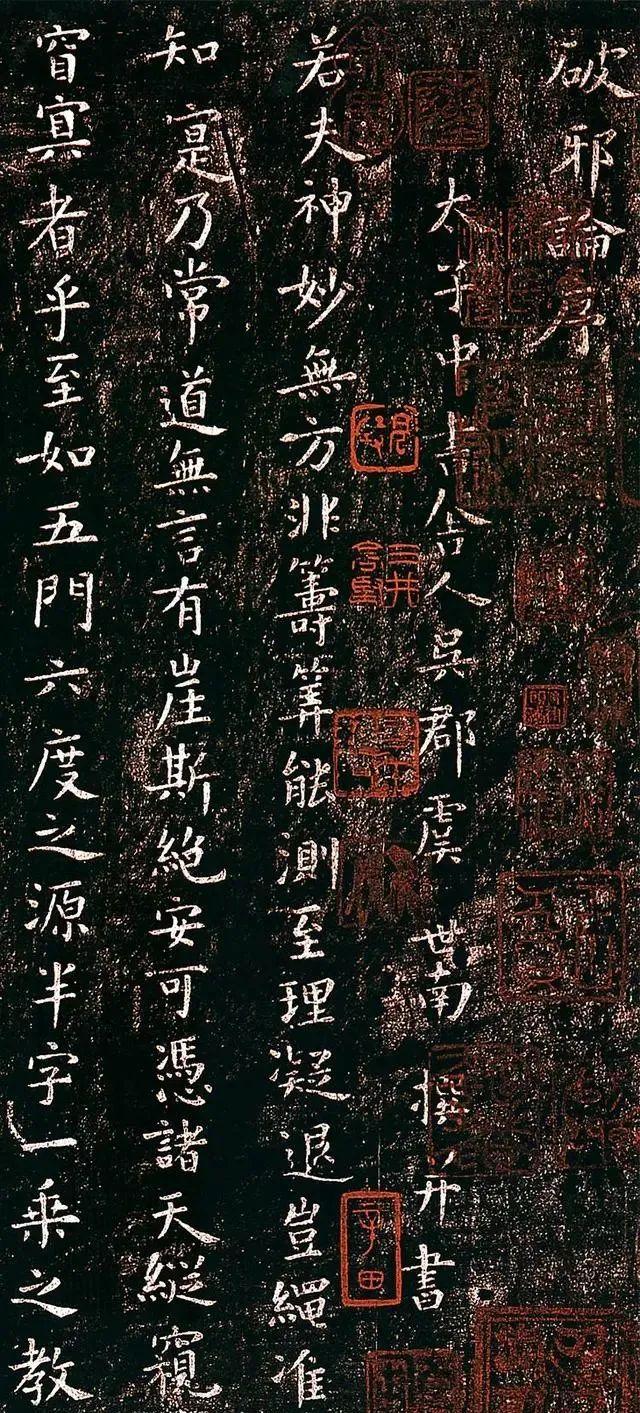 破邪論序
太子中書舍人吳郡虞世南撰并書
若夫神妙無方非籌筭能測至理凝退豈繩准
知寔乃常道無言有崖斯絕安可憑諸天縱窺
窅冥者乎至如五門六度之源半字一乘之教